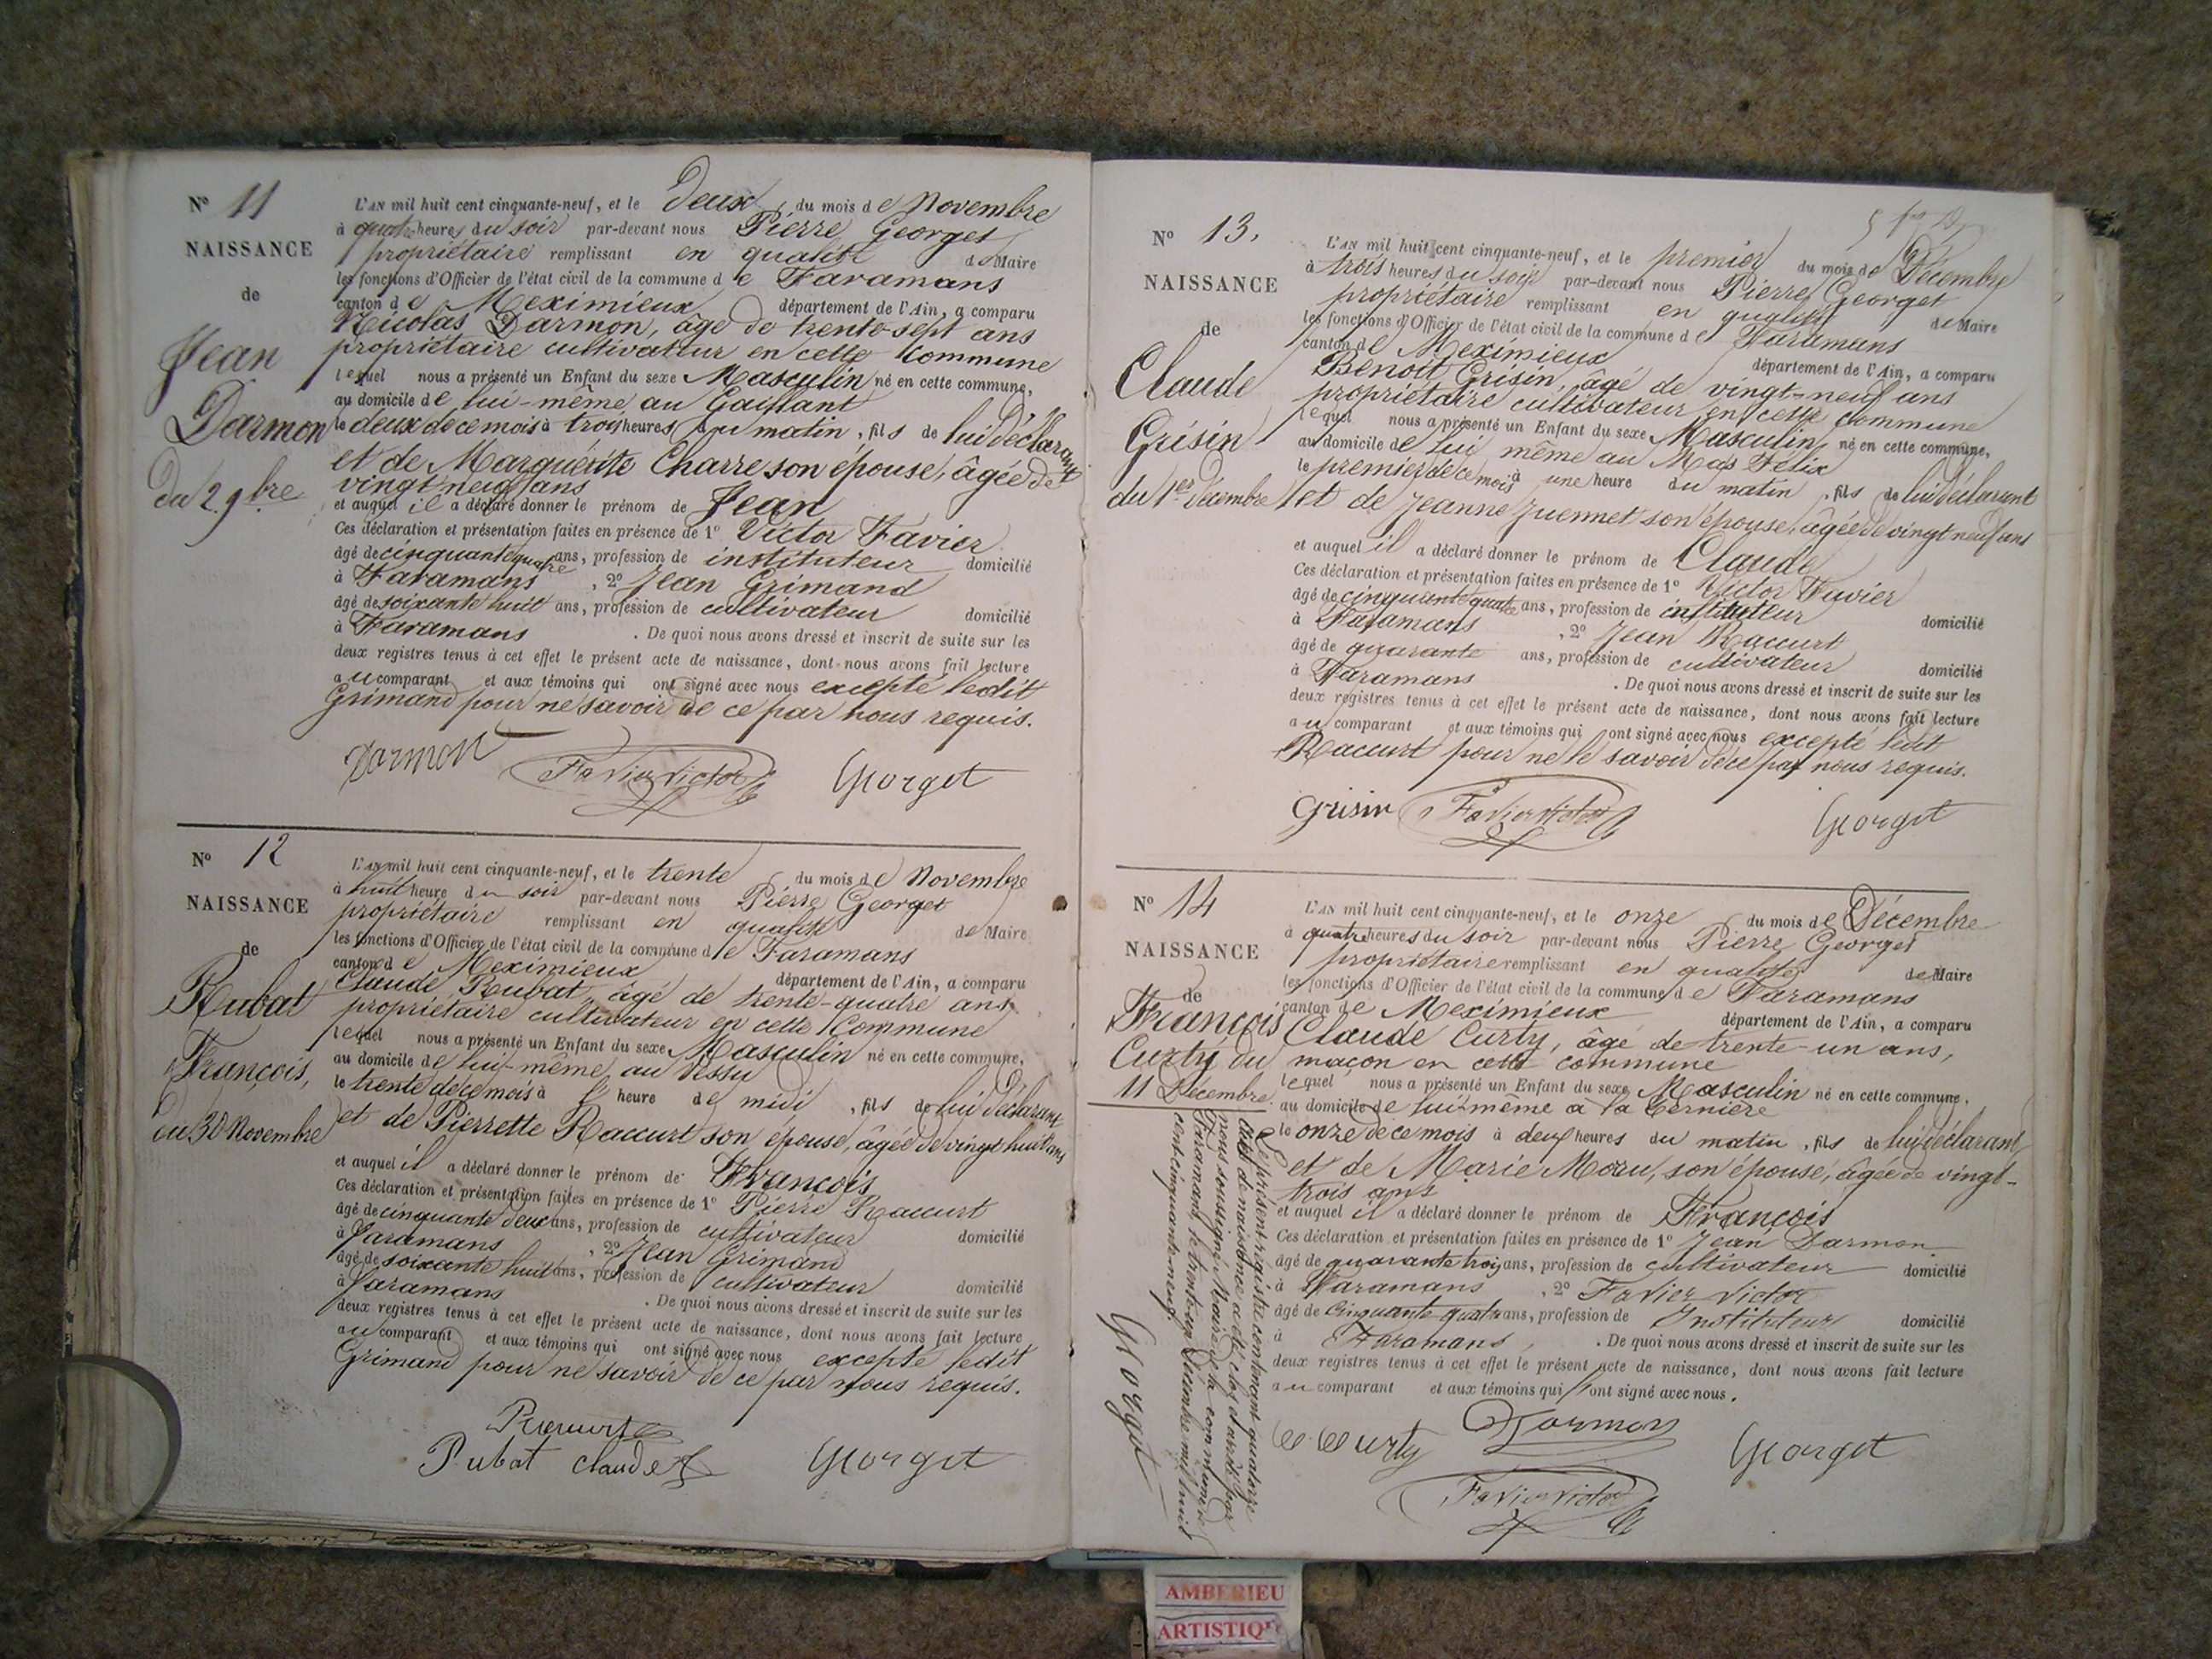 N° 11
NAISSANCE
de
Jean
Darmon
du 2 9bre
L'AN mil huit cent cinquante-neuf, et le Deux du mois de Novembre
à quatre heures du soir par-devant nous Pierre Georget
propriétaire remplissant en qualité de Maire
les fonctions d'Officier de l'état civil de la commune de Faramans
canton de Meximieux département de l'Ain, a comparu
Nicolas Darmon, âgé de trente-sept ans
propriétaire cultivateur en cette Commune
lequel nous a présenté un Enfant du sexe Masculin né en cette commune,
au domicile de lui-même au Gaillant
le deux de ce mois à trois heures du matin, fils de lui Déclarant
et de Marguerite Charre son épouse, âgée de
vingt neuf ans
et auquel il a déclaré donner le prénom de Jean
Ces déclaration et présentation faites en présence de 1° Victor Favier
âgé de cinquante quatre ans, profession de instituteur domicilié
à Faramans, 2° Jean Grimand
âgé de soixante huit ans, profession de cultivateur domicilié
à Faramans. De quoi nous avons dressé et inscrit de suite sur les
deux registres tenus à cet effet le présent acte de naissance, dont nous avons fait lecture
au comparant et aux témoins qui ont signé avec nous excepté ledit
Grimand pour ne savoir de ce par nous requis.
Darmon Favier Victor Georget
N° 12
NAISSANCE
de
Rubat
François,
du 30 Novembre
L'AN mil huit cent cinquante-neuf, et le trente du mois de Novembre
à huit heure du soir par-devant nous Pierre Georget
propriétaire remplissant en qualité de Maire
les fonctions d'Officier de l'état civil de la commune de Faramans
canton de Meximieux département de l'Ain, a comparu
Claude Rubat, âgé de trente-quatre ans
propriétaire cultivateur en cette Commune
lequel nous a présenté un Enfant du sexe Masculin né en cette commune,
au domicile de lui-même, au Dessu
le trente de ce mois à heure de midi, fils de lui Déclarant
et de Pierrette Raccurt son épouse, âgée de vingt huit ans
et auquel il a déclaré donner le prénom de François
Ces déclaration et présentation faites en présence de 1° Pierre Raccurt
âgé de cinquante deux ans, profession de cultivateur
à Faramans, 2° Jean Grimand domicilié
âgé de soixante huit ans, profession de cultivateur
à Faramans domicilié
. De quoi nous avons dressé et inscrit de suite sur les
deux registres tenus à cet effet le présent acte de naissance, dont nous avons fait lecture
au comparant et aux témoins qui ont signé avec nous excepté ledit
Grimand pour ne savoir de ce par nous requis.
Raccurt
Rubat claude Georget
N° 13.
NAISSANCE
de
Claude
Grisin
du 1er Décembre
L'AN mil huit cent cinquante-neuf, et le premier du mois de Décembre
à trois heures du soir par-devant nous Pierre Georget
propriétaire remplissant en qualité de Maire
les fonctions d'Officier de l'état civil de la commune de Faramans
canton de Meximieux département de l'Ain, a comparu
Benoit Grisin, âgé de vingt-neuf ans
propriétaire cultivateur en cette commune
lequel nous a présenté un Enfant du sexe Masculin né en cette commune,
au domicile de lui même au Mas Félix
le premier de ce mois à une heure du matin, fils de lui déclarant
et de Jeanne Juennet son épouse, âgée de vingt neuf ans
et auquel il a déclaré donner le prénom de Claude
Ces déclaration et présentation faites en présence de 1° Victor Favier
âgé de cinquante quatre ans, profession de instituteur domicilié
à Faramans, 2° Jean Raccurt
âgé de quarante ans, profession de cultivateur domicilié
à Faramans. De quoi nous avons dressé et inscrit de suite sur les
deux registres tenus à cet effet le présent acte de naissance, dont nous avons fait lecture
au comparant et aux témoins qui ont signé avec nous excepté ledit
Raccurt pour ne le savoir de ce par nous requis.
Grisin Favier Victor Georget
N° 14
NAISSANCE
de
François
Curty, du
11 Décembre.
L'AN mil huit cent cinquante-neuf, et le onze du mois de Décembre
à quatre heures du soir par-devant nous Pierre Georget
propriétaire remplissant en qualité de Maire
les fonctions d'Officier de l'état civil de la commune de Faramans
canton de Meximieux département de l'Ain, a comparu
Claude Curty, âgé de trente-un ans,
maçon en cette commune
lequel nous a présenté un Enfant du sexe Masculin né en cette commune,
au domicile de lui-même à la Bernière
le onze de ce mois à deux heures du matin, fils de lui déclarant,
et de Marie Moru, son épouse, âgée de vingt-
trois ans
et auquel il a déclaré donner le prénom de François
Ces déclaration et présentation faites en présence de 1° Jean Darmon
âgé de quarante trois ans, profession de cultivateur domicilié
à Faramans, 2° Favier Victor
âgé de Cinquante quatre ans, profession de Instituteur domicilié
à Faramans. De quoi nous avons dressé et inscrit de suite sur les
deux registres tenus à cet effet le présent acte de naissance, dont nous avons fait lecture
au comparant et aux témoins qui ont signé avec nous.
C Curty Darmon Georget
Favier Victor
Le présent registre contenant quatorze
actes de naissance a été clos et arrêté par
nous soussigné Maire de la commune de
Faramans, le trente un Décembre mil huit
cent cinquante neuf
Georget
AMBERIEU
ARTISTIQ